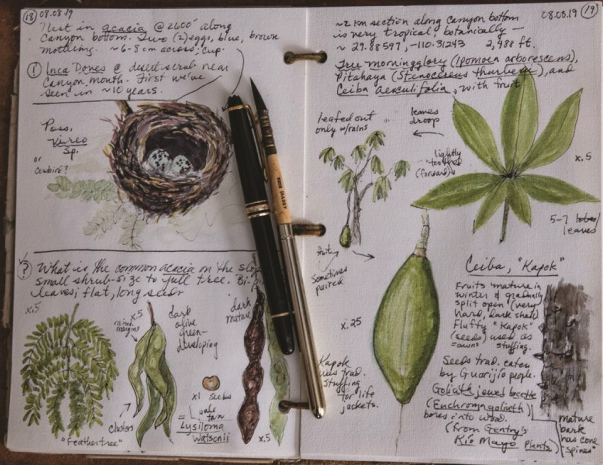 18 08.08.19
1 nest in acacia @ 2600' along
Canyon bottom. Two (2) eggs, blue, brown
mottling. ~ 6-8 cm across, cup.
! Inca Doves @ desert scrub near
Canyon mouth. First we've
seen in ~10 years.
Poss.
Vireo
sp.
or
? What is the common acacia on the slop
small shrub-size to full tree. Bi-
leaves; flat, long
x.5
x.5
dark
olive
green-
developing
dark
mature
x1 seeds
pale
tan
= Lysiloma
watsonii
x.5
cluster
"feathertree"
~2 km section along Canyon bottom
is very tropical botanically —
~ 29.88597, -110.31243 2,488 ft.
08.03.19 19
Tree morningglory (Ipomoea arborescens),
Pitahaya (Stenocereus thurberi), and
Ceiba aesculifolia, with fruit
leafed out
only w/rains
leaves
droop
lightly
toothed
(forward)
x.5
5-7 lobes/
leaves
fruit
Sometimes
paired
x.25
Ceiba, "Kapok"
Fruits mature in
winter & gradually
split open (very
hard, dark shell)
Fluffy "Kapok"
(seeds) used as
stuffing.
Seeds trad. eaten
by Guarijio people.
Goliath jewel beetle
(Euchroma goliath)
bores into wood.
(from Gentry's
Rio Mayo Plants)
Kapok
was trad.
stuffing
for life
jackets.
mature
bark
has cone
"spines"